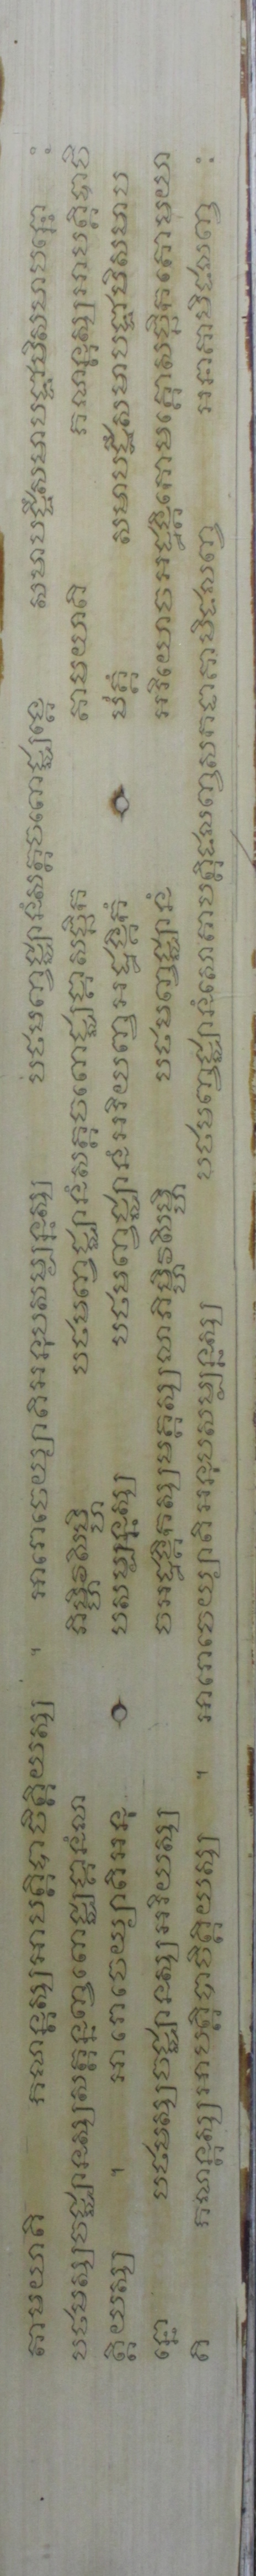 តាមយាតិ កណន្តស្សអាបត្តិបាចិត្តិយស្ស ។ អារោចេយ្យាតិអនុបសម្បន្នស្ស បឋមញ្ចជ្ឈានំសត្តចពោជ្ឈង្គេ សមាបជ្ជឹសមាបជ្ជាមិសមាបន្នោ ៖
បឋមស្សចជ្ឈានស្សសត្តន្នញ្ចពោជ្ឈង្គានំលា ភិម្ហិវសិម្ហិ បឋមញ្ចជ្ឈានំសត្តចពោជ្ឈង្គាសច្ឆិក តាមយាតិ កណន្តស្សអាបត្តិបាចិ
ត្តិយស្ស ។ អារោចេយ្យាតិអនុ បសម្បន្នស្ស បឋមញ្ចជ្ឈានំអរិយញ្ចអដ្ឋង្គិកំ ម៌គ្គំ សមាបជ្ជឹសមាបជ្ជាមិសមាប
ន្នោ បឋមស្សចជ្ឈានស្សអរិយស្ស ចអដ្ឋង្គិកស្សមគ្គស្សលាភិម្ហិវសិម្ហិ បឋមញ្ចជ្ឈានំ អរិយោចអដ្ឋង្គិកោមគ្គោសច្ឆិកតោមយា
តិ កណន្តស្សអាបត្តិបាចិត្តិយស្ស ។ អារោចេយ្យាតិអនុបសម្បន្នស្ស បឋមញ្ចជ្ឈានំសោតាបត្តិផលញ្ចសកទាគាមិផលញ្ច អនាគាមិផលញ្ច ៖